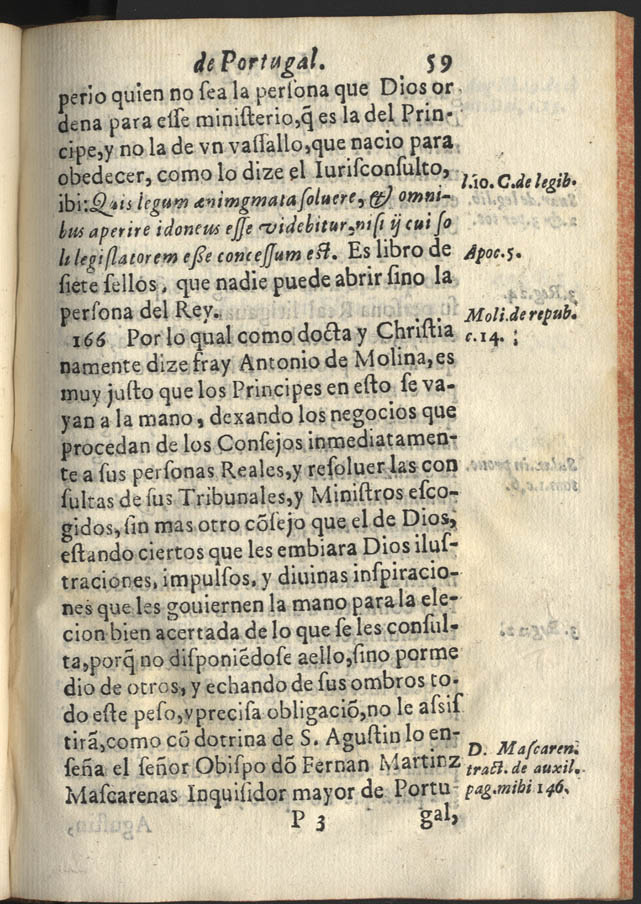 de Portugal. 59
perio quien no ſea la perſona que Dios or
dena para eſſe miniſterio,q̃ es la del Prin-
cipe,y no la de vn vaſſallo,que nacio para
obedecer, como lo dize el Iuriſconſulto,
ibi:Quis legum ænimgmata ſoluere, & omni-
bus aperire idoneus eſſe videbitur,niſi ij cui ſo
li legiſlatorem eſſe conceſſum eſt. Es libro de
ſiete ſellos, que nadie puede abrir ſino la
perſona del Rey.
166 Por lo qual como docta y Chriſtia
namente dize fray Antonio de Molina,es
muy juſto que los Principes en eſto ſe va-
yan a la mano, dexando los negocios que
procedan de los Conſejos inmediatamen-
te a sus perſonas Reales,y reſoluer las con
ſultas de sus Tribunales,y Miniſtros eſco-
gidos, ſin mas otro cõſejo que el de Dios,
eſtando ciertos que les embiara Dios iluſ-
traciones, impulſos, y diuinas inſpiracio-
nes que les gouiernen la mano para la ele-
cion bien acertada de lo que ſe les conſul-
ta,porq̃ no diſponiẽdoſe aello,ſino porme
dio de otros, y echando de ſus ombros to-
do eſte peſo,y preciſa obligaciõ,no le aſſiſ
tirã,como cõ dotrina de S. Aguſtin lo en-
ſeña el ſeñor Obiſpo dõ Fernan Martinz
Maſcarenas Inquiſidor mayor de Portu-
P 3 gal,
l.10. C. de legib.
Apoc.5.
Moli.de repub.
c.14.
D. Maſcaren.
tract. de auxil.
pag.mihi 146.